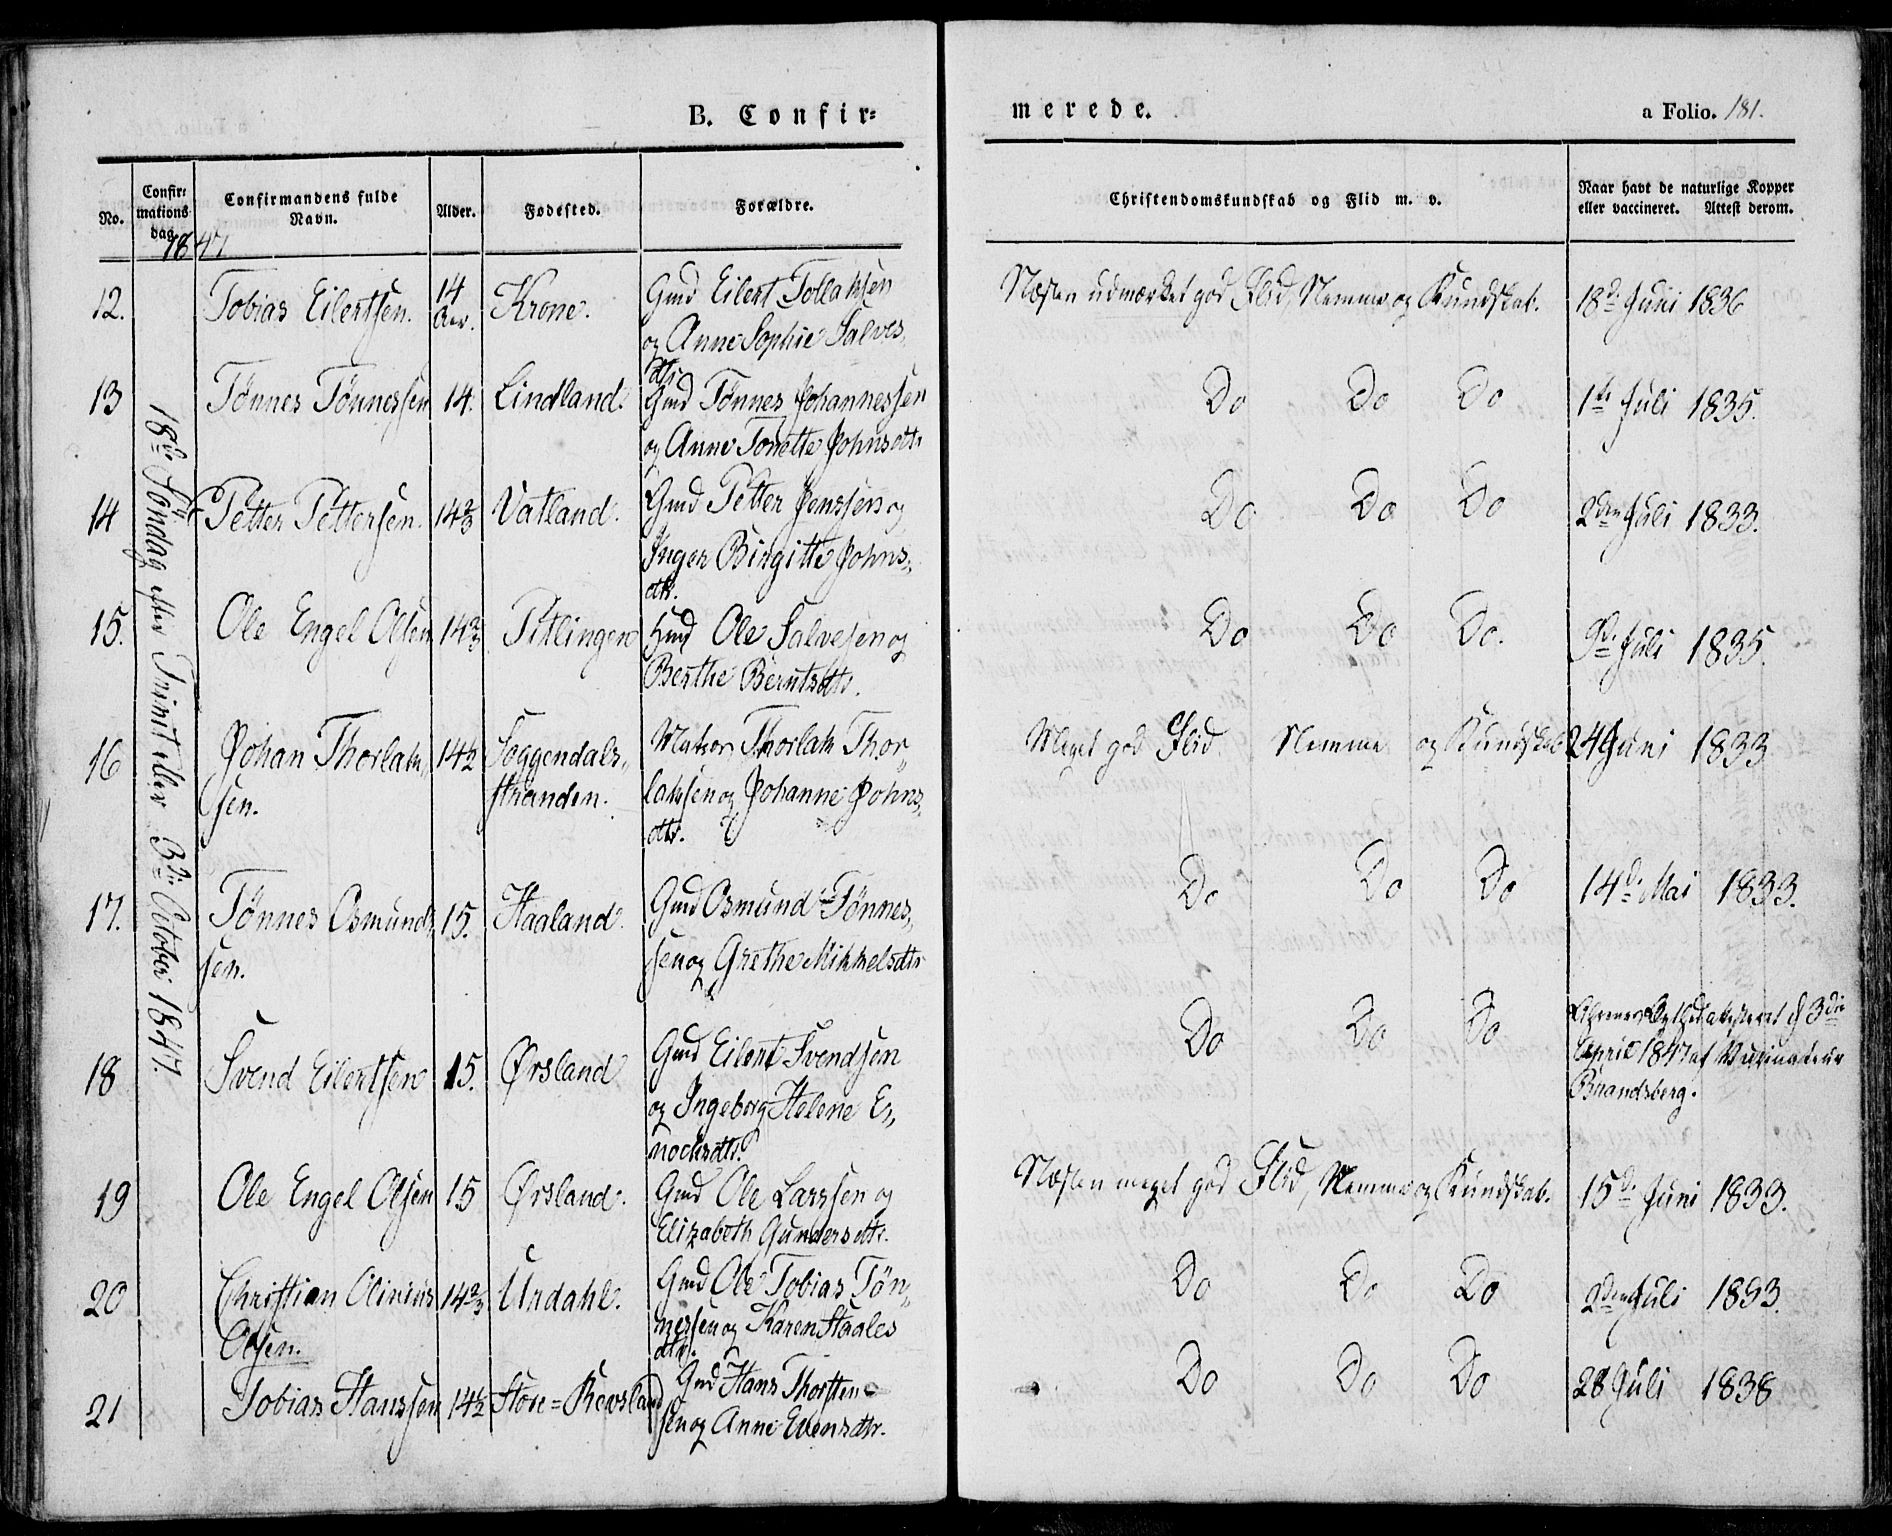 B. Confir=
merede.
a Folio. 181.
No.
Confir=
mations
dag.
Confirmandens fulde
Navn.
Alder.
Fødested.
Forældre.
Christendomskundskab og Flid m. v.
Naar havt de naturlige Kopper
eller vaccineret. Attest derom.
1847
18de Søndag efter Trinit eller 3die October 1847.
12. Tobias Eilertsen. 14 Aar. Krone. Gmd Eilert Tollaksen
og Anne Sophie Salves
dtr
Næsten udmærket god Flid, Nemme og Kundskab. 18de Juni 1836
13 Tønnes Tønnessen 14. Lindland. Gmd Tønnes Johannessen
og Anne Tonette Johnsdtr
Do Do Do 1ste Juli 1835.
14 Petter Pettersen. 14 2/3 Vatland. Gmd Petter Jenssen og
Inger Birgitte Johns„
dtr.
Do Do Do 2den Juli 1833.
15. Ole Engel Olsen 14 2/3 Pitlingen Hmd Ole Salvesen og
Berthe Berntsdtr.
Do Do Do. 9de Juli 1835.
16 Johan Thorlak„
sen. 14 1/2 Soggendals„
stranden. Matros Thorlak Thor„
laksen og Johanne Johns„
dtr.
Meget god Flid Nemme og Kundskab 24 Juni 1833
17. Tønnes Osmunds„
sen. 15. Haaland. Gmd Osmund Tønnes„
sen og Grethe Mikkelsdtr
Do Do Do 14de Mai 1833.
18 Svend Eilertsen 15. Ørsland Gmd Eilert Svendsen
og Ingeborg Helene E„
nochsdtr.
Do Do Do attesteret d 3die
April 1847 af Vaccinateur
Brandsberg.
19 Ole Engel Olsen 15 Ørsland. Gmd Ole Larssen og
Elizabeth Gundersdtr.
Næsten meget god Flid, Nemme og Kundskab. 15de Juni 1833.
20 Christian Olinius
Olsen. 14 2/3 Urdahl. Gmd Ole Tobias Tøn„
nessen og Karen Staales
dtr.
Do Do Do 2den Juli 1833.
21 Tobias Hanssen 14 1/2 Store=Revsland Gmd Hans Thorsten
sen og Anne Evensdtr.
Do Do Do 28 Juli 1838